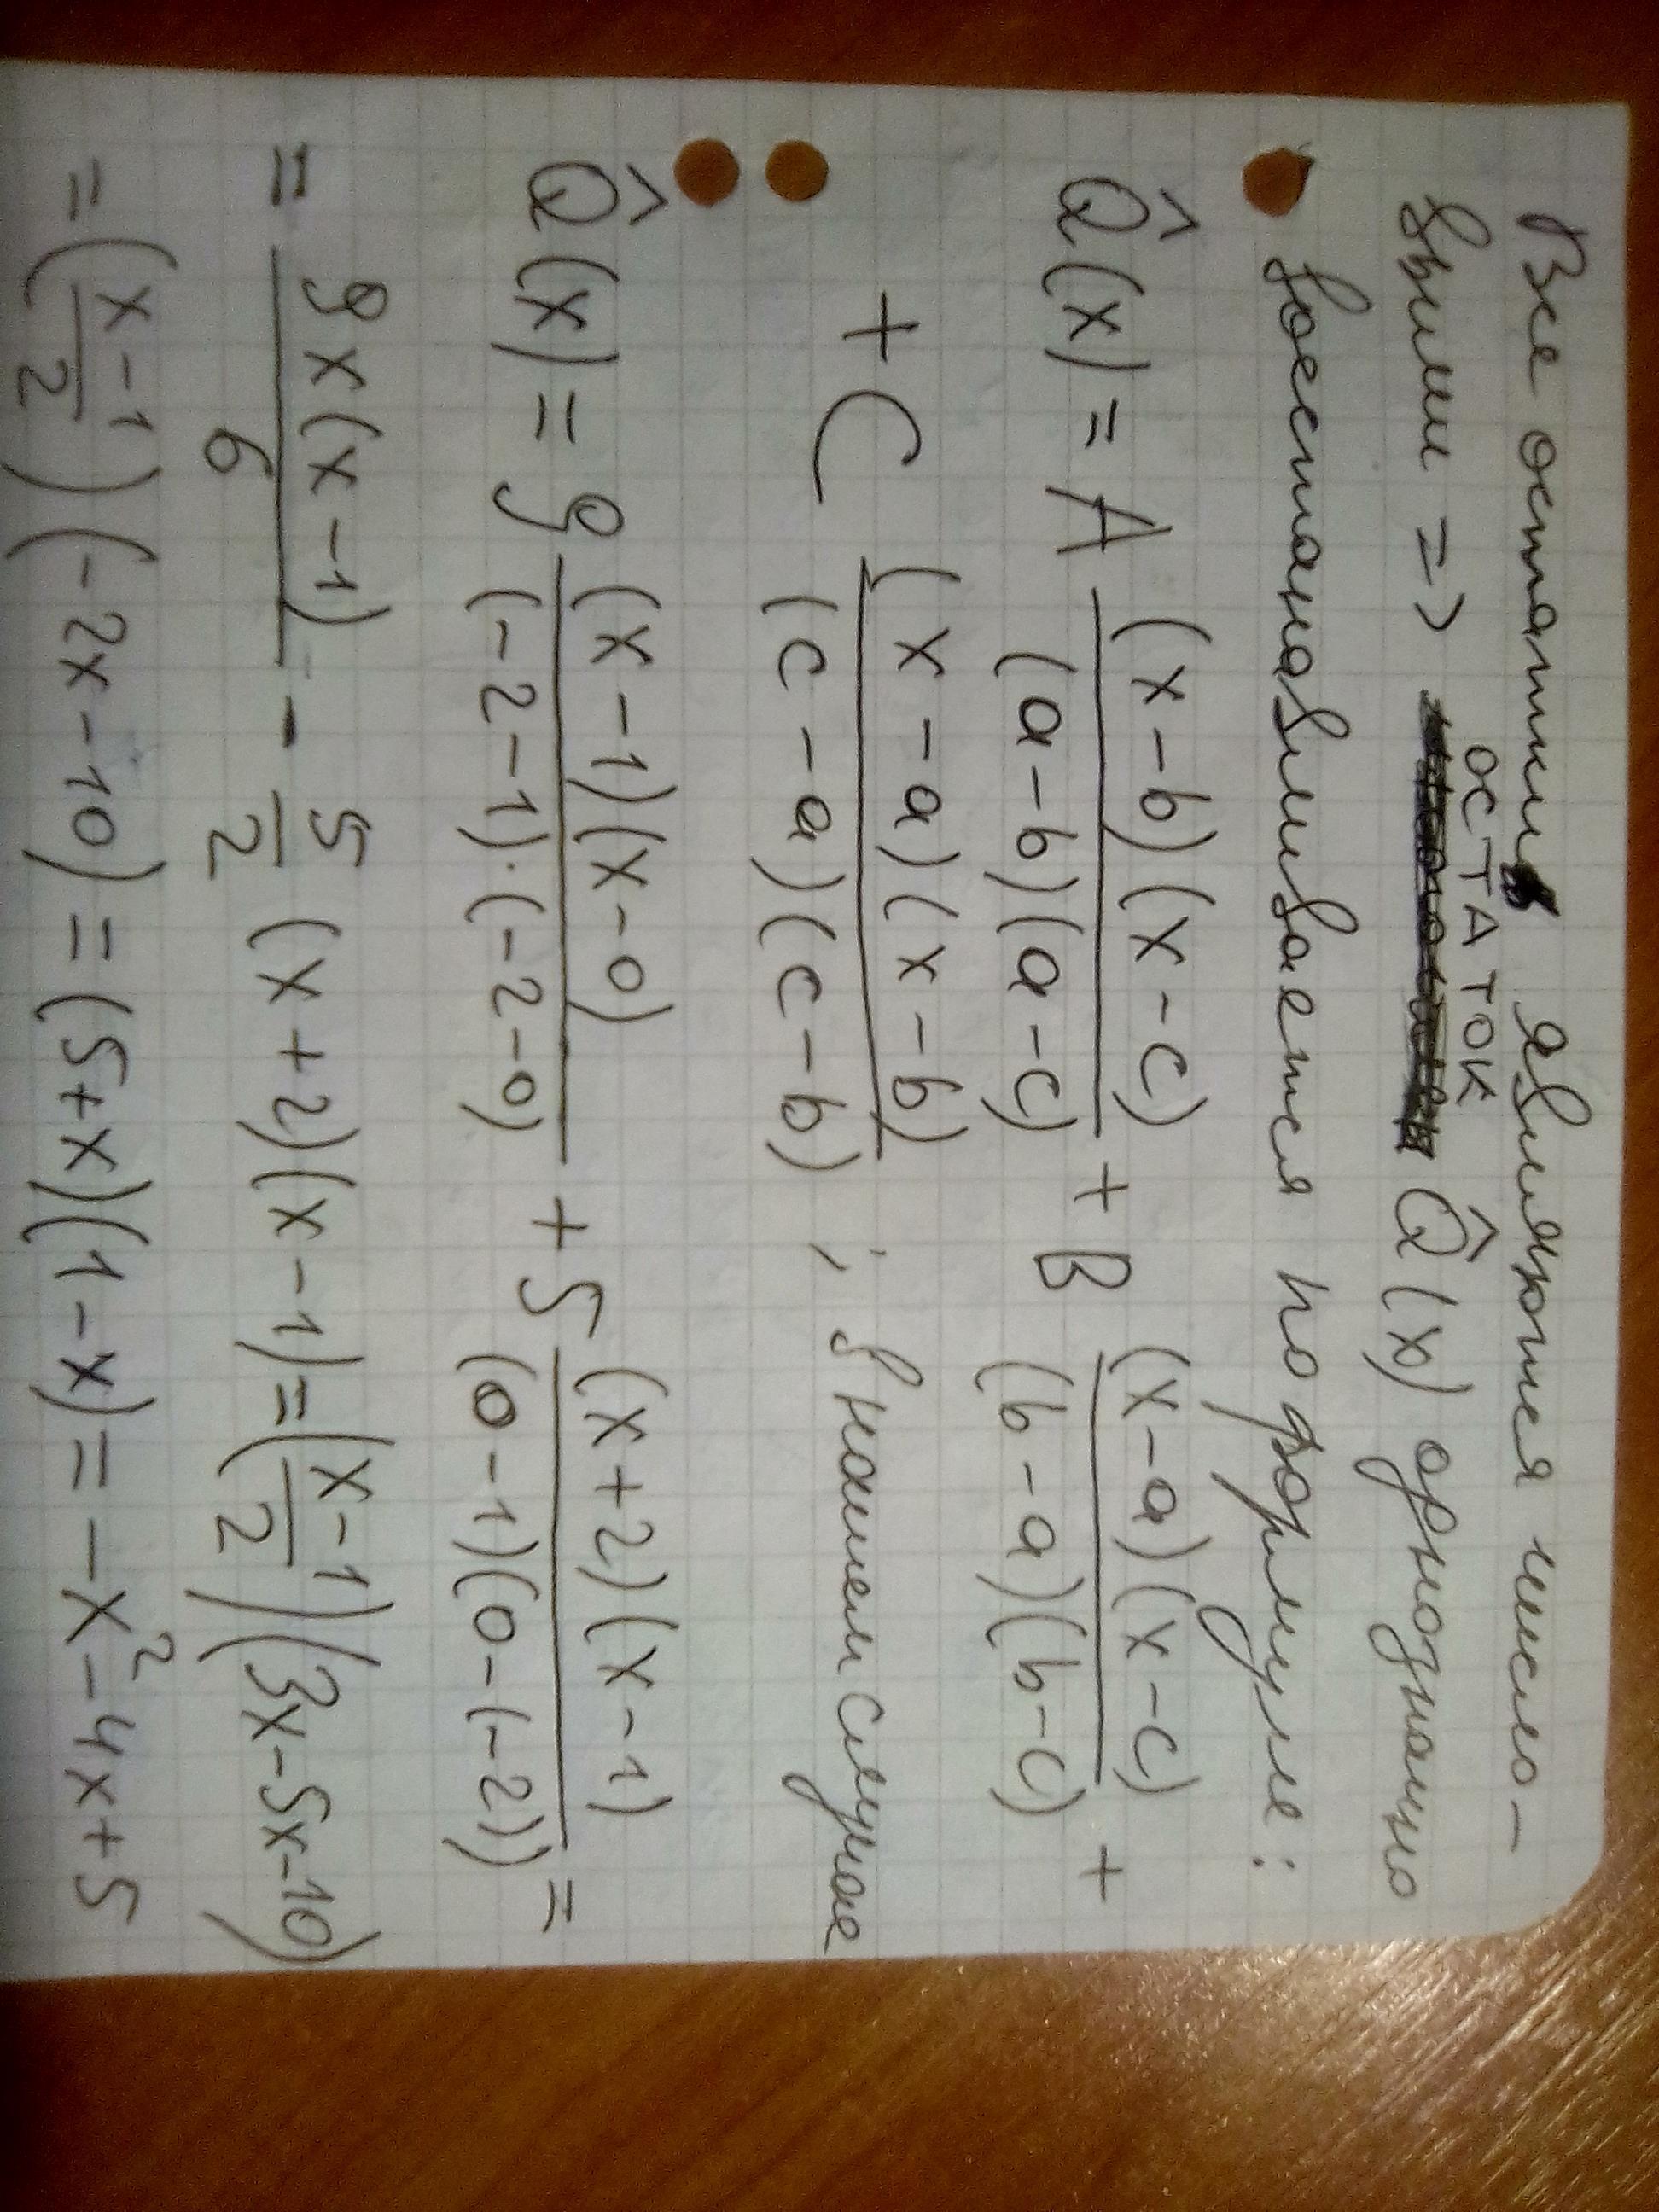 Все остатки являются число-
выми => остаток Q̂(x) однозначно
восстанавливается по формуле:
Q̂(x) = A (x-b)(x-c)/(a-b)(a-c) + B (x-a)(x-c)/(b-a)(b-c) +
+ C (x-a)(x-b)/(c-a)(c-b) ; в нашем случае
Q̂(x) = 9 (x-1)(x-0)/(-2-1)·(-2-0) + 5 (x+2)(x-1)/(0-1)(0-(-2)) =
= 9x(x-1)/6 - 5/2 (x+2)(x-1) = (x-1/2)(3x-5x-10)
= (x-1/2)(-2x-10) = (5+x)(1-x) = -x²-4x+5